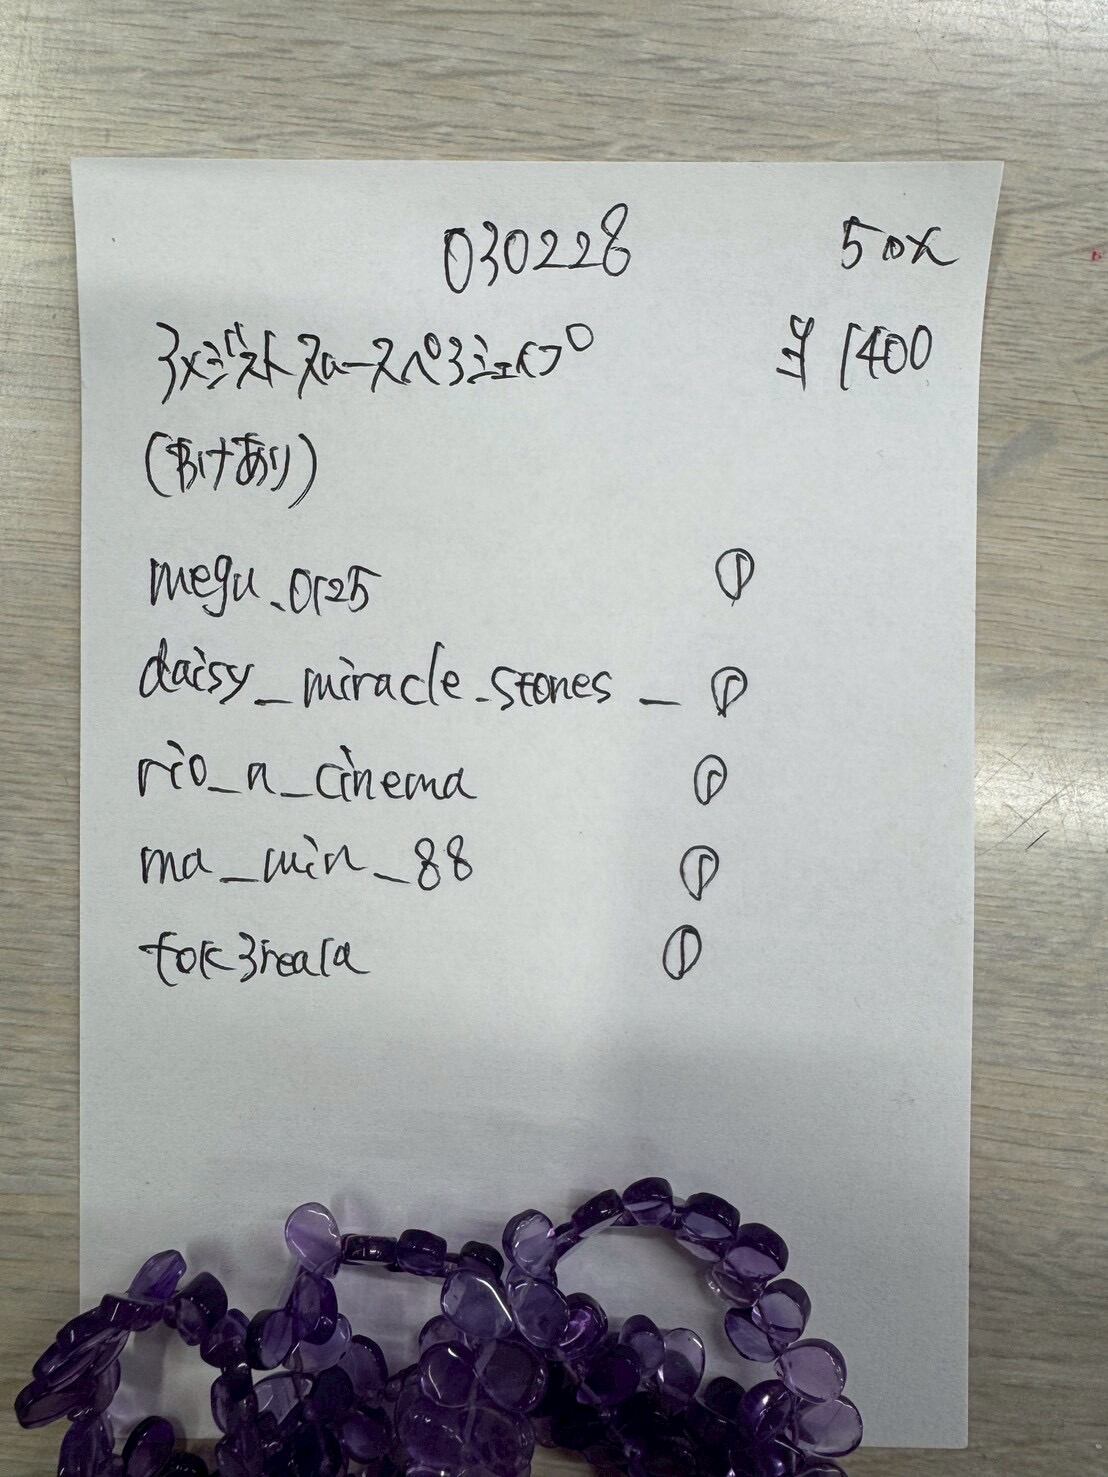 030228 50x
アメジスト スムースペアシェイプ ¥1400
(わけあり)
megu_0125 ①
daisy_miracle_stones_ ①
rio_n_cinema ①
ma_min_88 ①
tok3reala ①